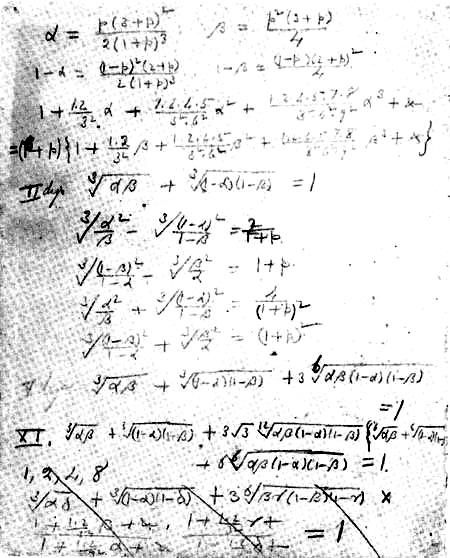 α = p(3+p)²/2(1+p)³   β = p²(3+p)/4
1-α = (1-p)²(2+p)/2(1+p)³   1-β = (1-p)(2+p)²/4
1 + 1.2/3² α + 1.2.4.5/3².6² α² + 1.2.4.5.7.8/3².6².9² α³ + &c
= (1+p){1 + 1.2/3² β + 1.2.4.5/3².6² β² + 1.2.4.5.7.8/3².6².9² β³ + &c}
II deg. ∛(αβ) + ∛((1-α)(1-β)) = 1
∛(α²/β) - ∛((1-α)²/(1-β)) = 2/(1+p)
∛((1-β)²/(1-α)) - ∛(β²/α) = 1+p
∛(α²/β) + ∛((1-α)²/(1-β)) = 4/(1+p)²
∛((1-β)²/(1-α)) + ∛(β²/α) = (1+p)²
∛(αβ) + ∛((1-α)(1-β)) + 3 ⁶√(αβ(1-α)(1-β))
= 1
XI. ∛(αβ) + ∛((1-α)(1-β)) + 3√3 ¹²√(αβ(1-α)(1-β)) {⁶√(αβ) + ⁶√((1-α)(1-β))
+ 6 ⁶√(αβ(1-α)(1-β)) = 1.
1, 2, 4, 8
∛(αδ) + ∛((1-α)(1-δ)) + 3 ∛(βγ(1-β)(1-γ)) ×
= 1